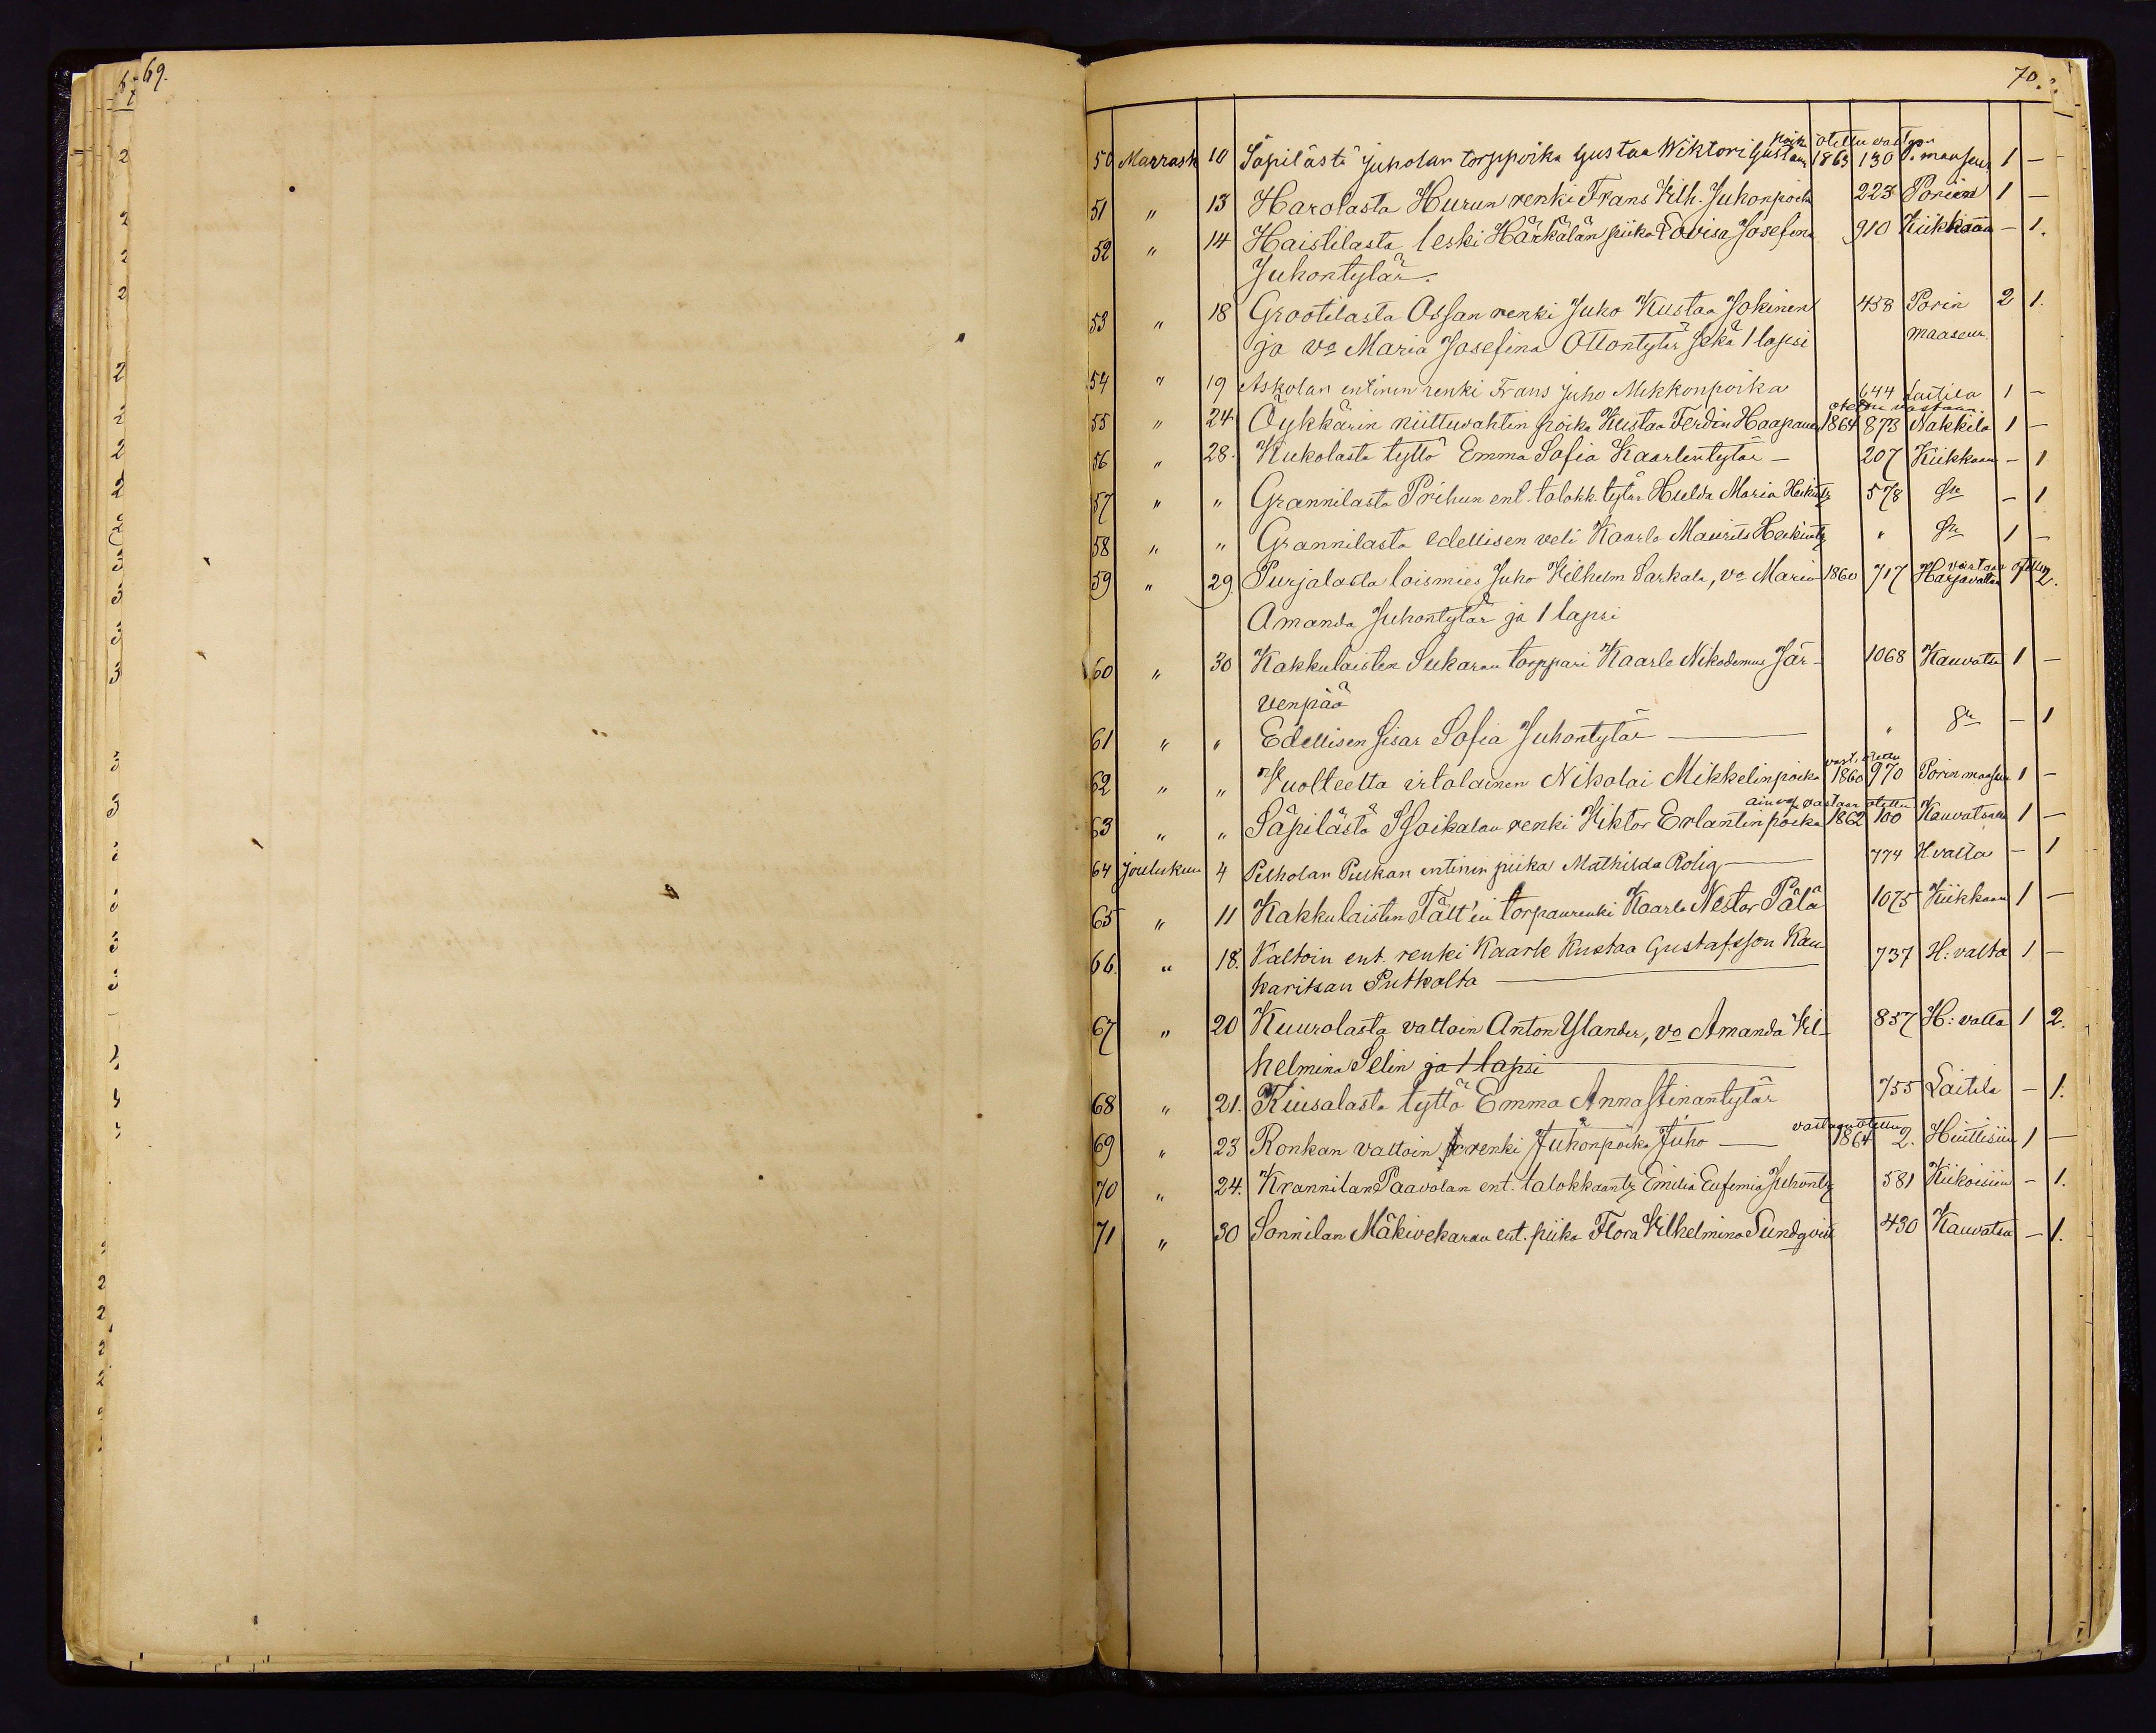 69.
70.
50 Marrask 10 Säpilästä Juholan torppoika Gustaa Wiktori Gustaas poik. 1863 otettu vastaan 130 P. maaseur 1 —
51 " 13 Harolasta Hurun renki Frans Vilh. Juhonpoika 223 Poriin 1 —
52 " 14 Haistilasta leski Härkälän piika Lovisa Josefina 910 Kiikkaan — 1.
Juhontytär.
53 " 18 Grootilasta Ossan renki Juho Kustaa Jokinen 458 Porin 2 1.
ja vo Maria Josefina Ottontytär sekä 1 lapsi maaseur.
54 " 19 Askolan entinen renki Frans Juho Mikkonpoika 644 Laitila 1 —
55 " 24 Öykkärin niittuvahtin poika Kustaa Ferdin Haapanen 1864 otettu vastaan. 873 Nakkila 1 —
56 " 28. Kukolasta tyttö Emma Sofia Kaarlentytär — 207 Kiikkaan — 1
57 " " Grannilasta Prihun ent. talokk. tytär Hulda Maria Heikintz 578 Sn — 1
58 " " Grannilasta edellisen veli Kaarlo Maurits Heikintz " Sn 1 —
59 " 29. Purjalasta loismies Juho Vilhelm Sarkala, vo Maria 1860 717 Harjavalta vastaan otettu 1 2.
Amanda Juhontytär ja 1 lapsi
60 " 30 Kakkulaisten Sukaran torppari Kaarlo Nikodemus Jär- 1068 Kauvatsa 1 —
venpää
61 " " Edellisen sisar Sofia Juhontytär — " Sn — 1
62 " " Vuolteetta irtolainen Nikolai Mikkelinpoika 1860 vast. otettu 970 Porin maaseu 1 —
63 " " Säpilästä Isoikalan renki Viktor Erlantinpoika 1862 vastaan otettu 100 Kauvatsalle 1 —
64 Joulukuu 4 Pelholan Puskan entinen piika Mathilda Rolig — 774 H valta — 1
65 " 11 Kakkulaisten Tält'in torpanrenki Kaarlo Nestor Pälä 1075 Kiikkaan 1 —
66. " 18. Valtoin ent. renki Kaarle Kustaa Gustafsson Kau- 737 H: valta 1 —
karitsan Putkolta —
67 " 20 Kuurolasta valtoin Anton Ylander, vo Amanda Vil- 857 H: valta 1 2.
helmina Selin ja 1 lapsi
68 " 21. Kiusalasta tyttö Emma Annastinantytär 755 Laitila — 1.
69 " 23 Ronkan valtoin renki Juhonpoika Juho — 1864 vastaan otettu 2. Huittisiin 1 —
70 " 24. Krannilan Paavolan ent. talokkaantz Emilia Eufemia Juhontz 581 Kiikoisiin — 1.
71 " 30 Sonnilan Mäkivekaran ent. piika Flora Vilhelmina Sundqvist 430 Kauvatsa — 1.